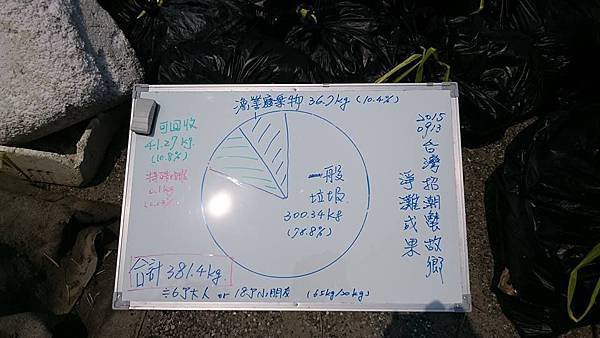 漁業廢棄物 36.7kg (10.4%)
可回收
41.27kg
(10.8%)
0.1kg
一般
垃圾
300.34kg
(78.8%)
2015
0913
台灣招潮蟹故鄉
淨灘成果
合計 381.4kg
÷6个大人 or 18个小朋友 (65kg/20kg)